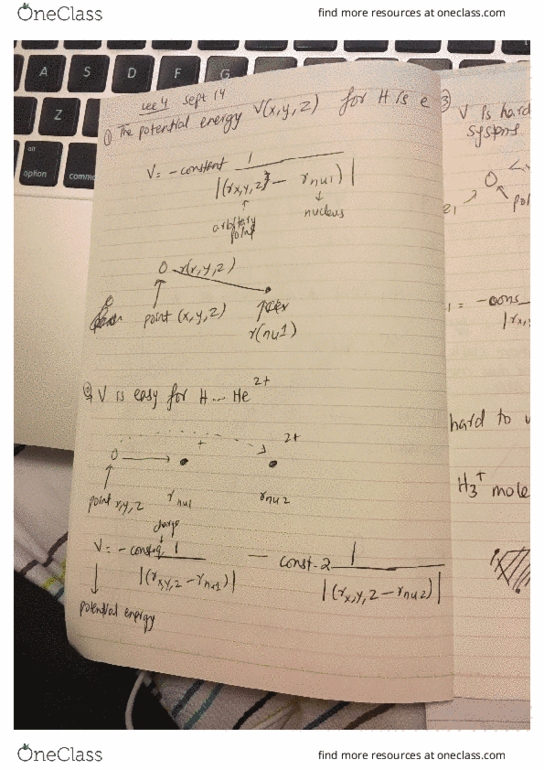 OneClass
find more resources at oneclass.com
A S D F G
Z
option
comm
Lec 4 Sept 14
① The potential energy V(x,y,z) for H is e
V = -constant 1
|(r x,y,z - r nu1)|
arbitrary point
nucleus
O r(x,y,z)
point (x,y,z)
r(nu1)
② V is easy for H ... He 2+
+ 2+
O
point x,y,z r nu1 r nu2
charge
V = - const 1 - const. 2 1
|(r x,y,z - r nu1)| |(r x,y,z - r nu2)|
potential energy
③ V is hard
systems
O
z1
= -cons
|rx,
hard to
H3+ mole
OneClass
find more resources at oneclass.com